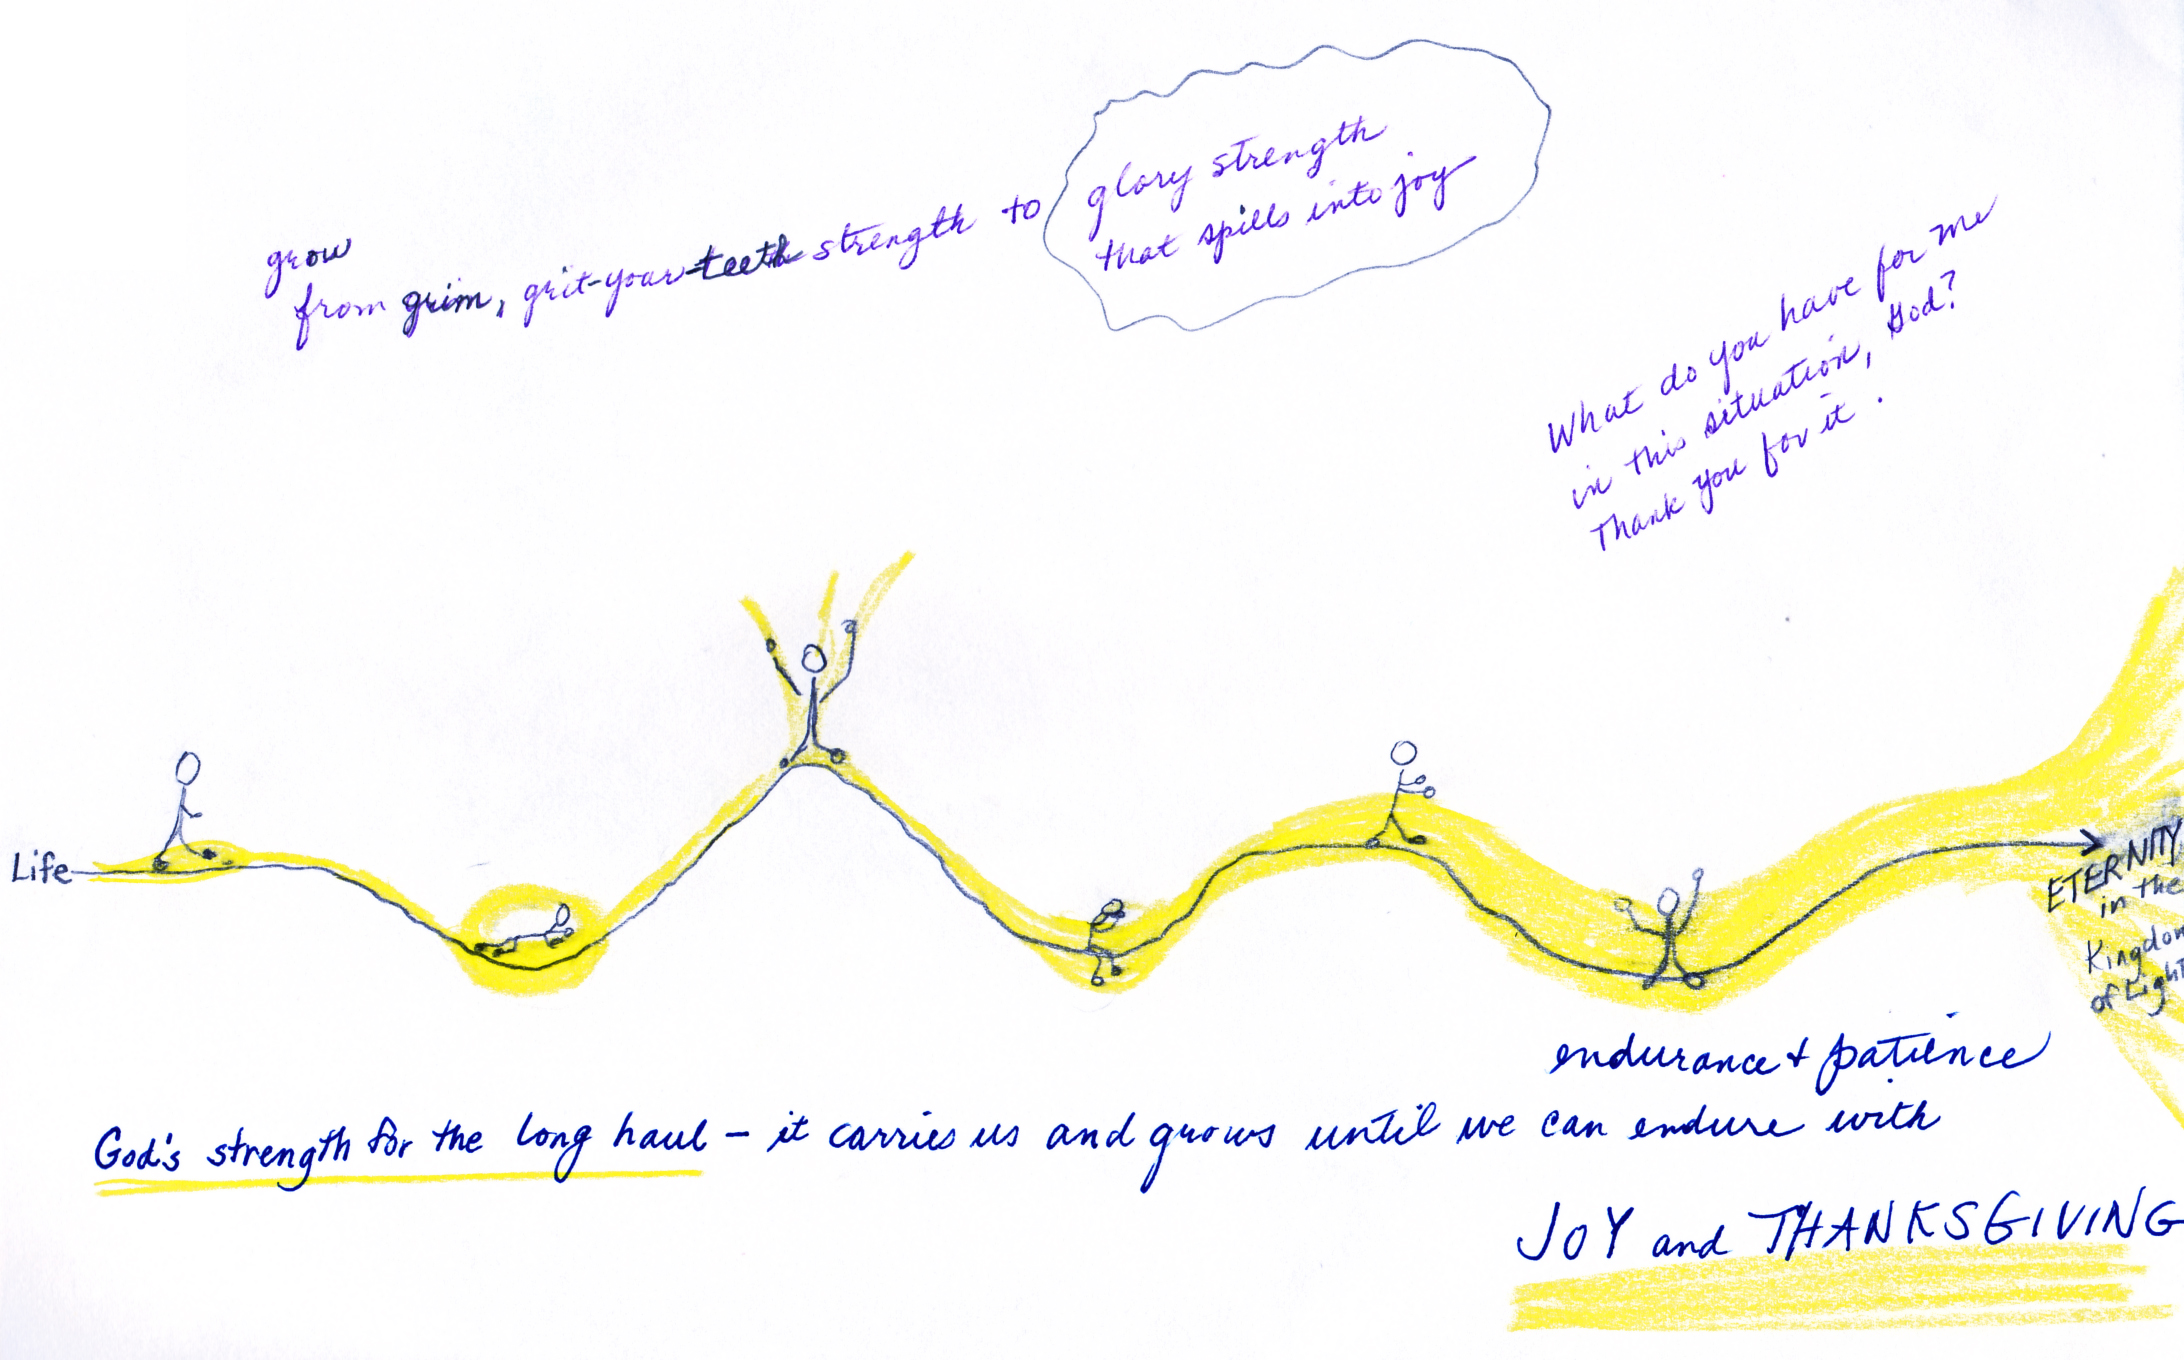 grow
from grim, grit-your-teeth strength to
glory strength
that spills into joy
What do you have for me
in this situation, God?
Thank you for it.
Life
ETERNITY
in the
Kingdom
of Light
endurance & patience
God's strength for the long haul – it carries us and grows until we can endure with
JOY and THANKSGIVING